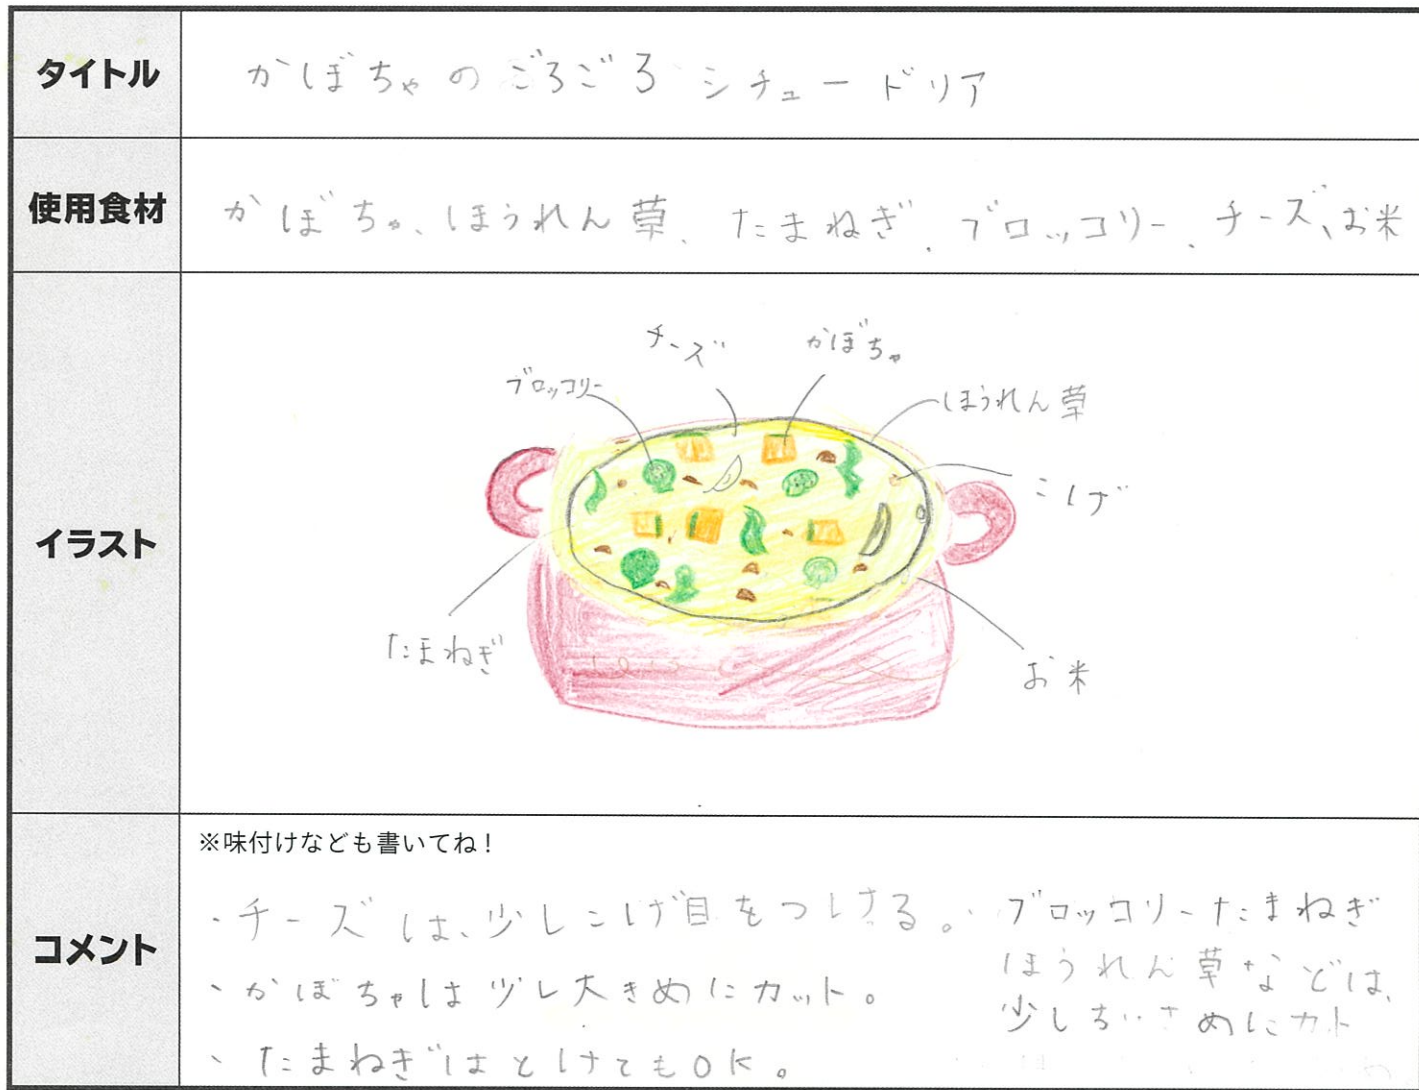 タイトル
かぼちゃのごろごろシチュードリア
使用食材
かぼちゃ、ほうれん草、たまねぎ、ブロッコリー、チーズ、お米
イラスト
チーズ
かぼちゃ
ブロッコリー
ほうれん草
こげ
たまねぎ
お米
コメント
※味付けなども書いてね！
・チーズは、少しこげ目をつける。
・かぼちゃは少し大きめにカット。
・たまねぎはとけてもOK。
・ブロッコリーたまねぎ
ほうれん草などは、
少しちいさめにカト